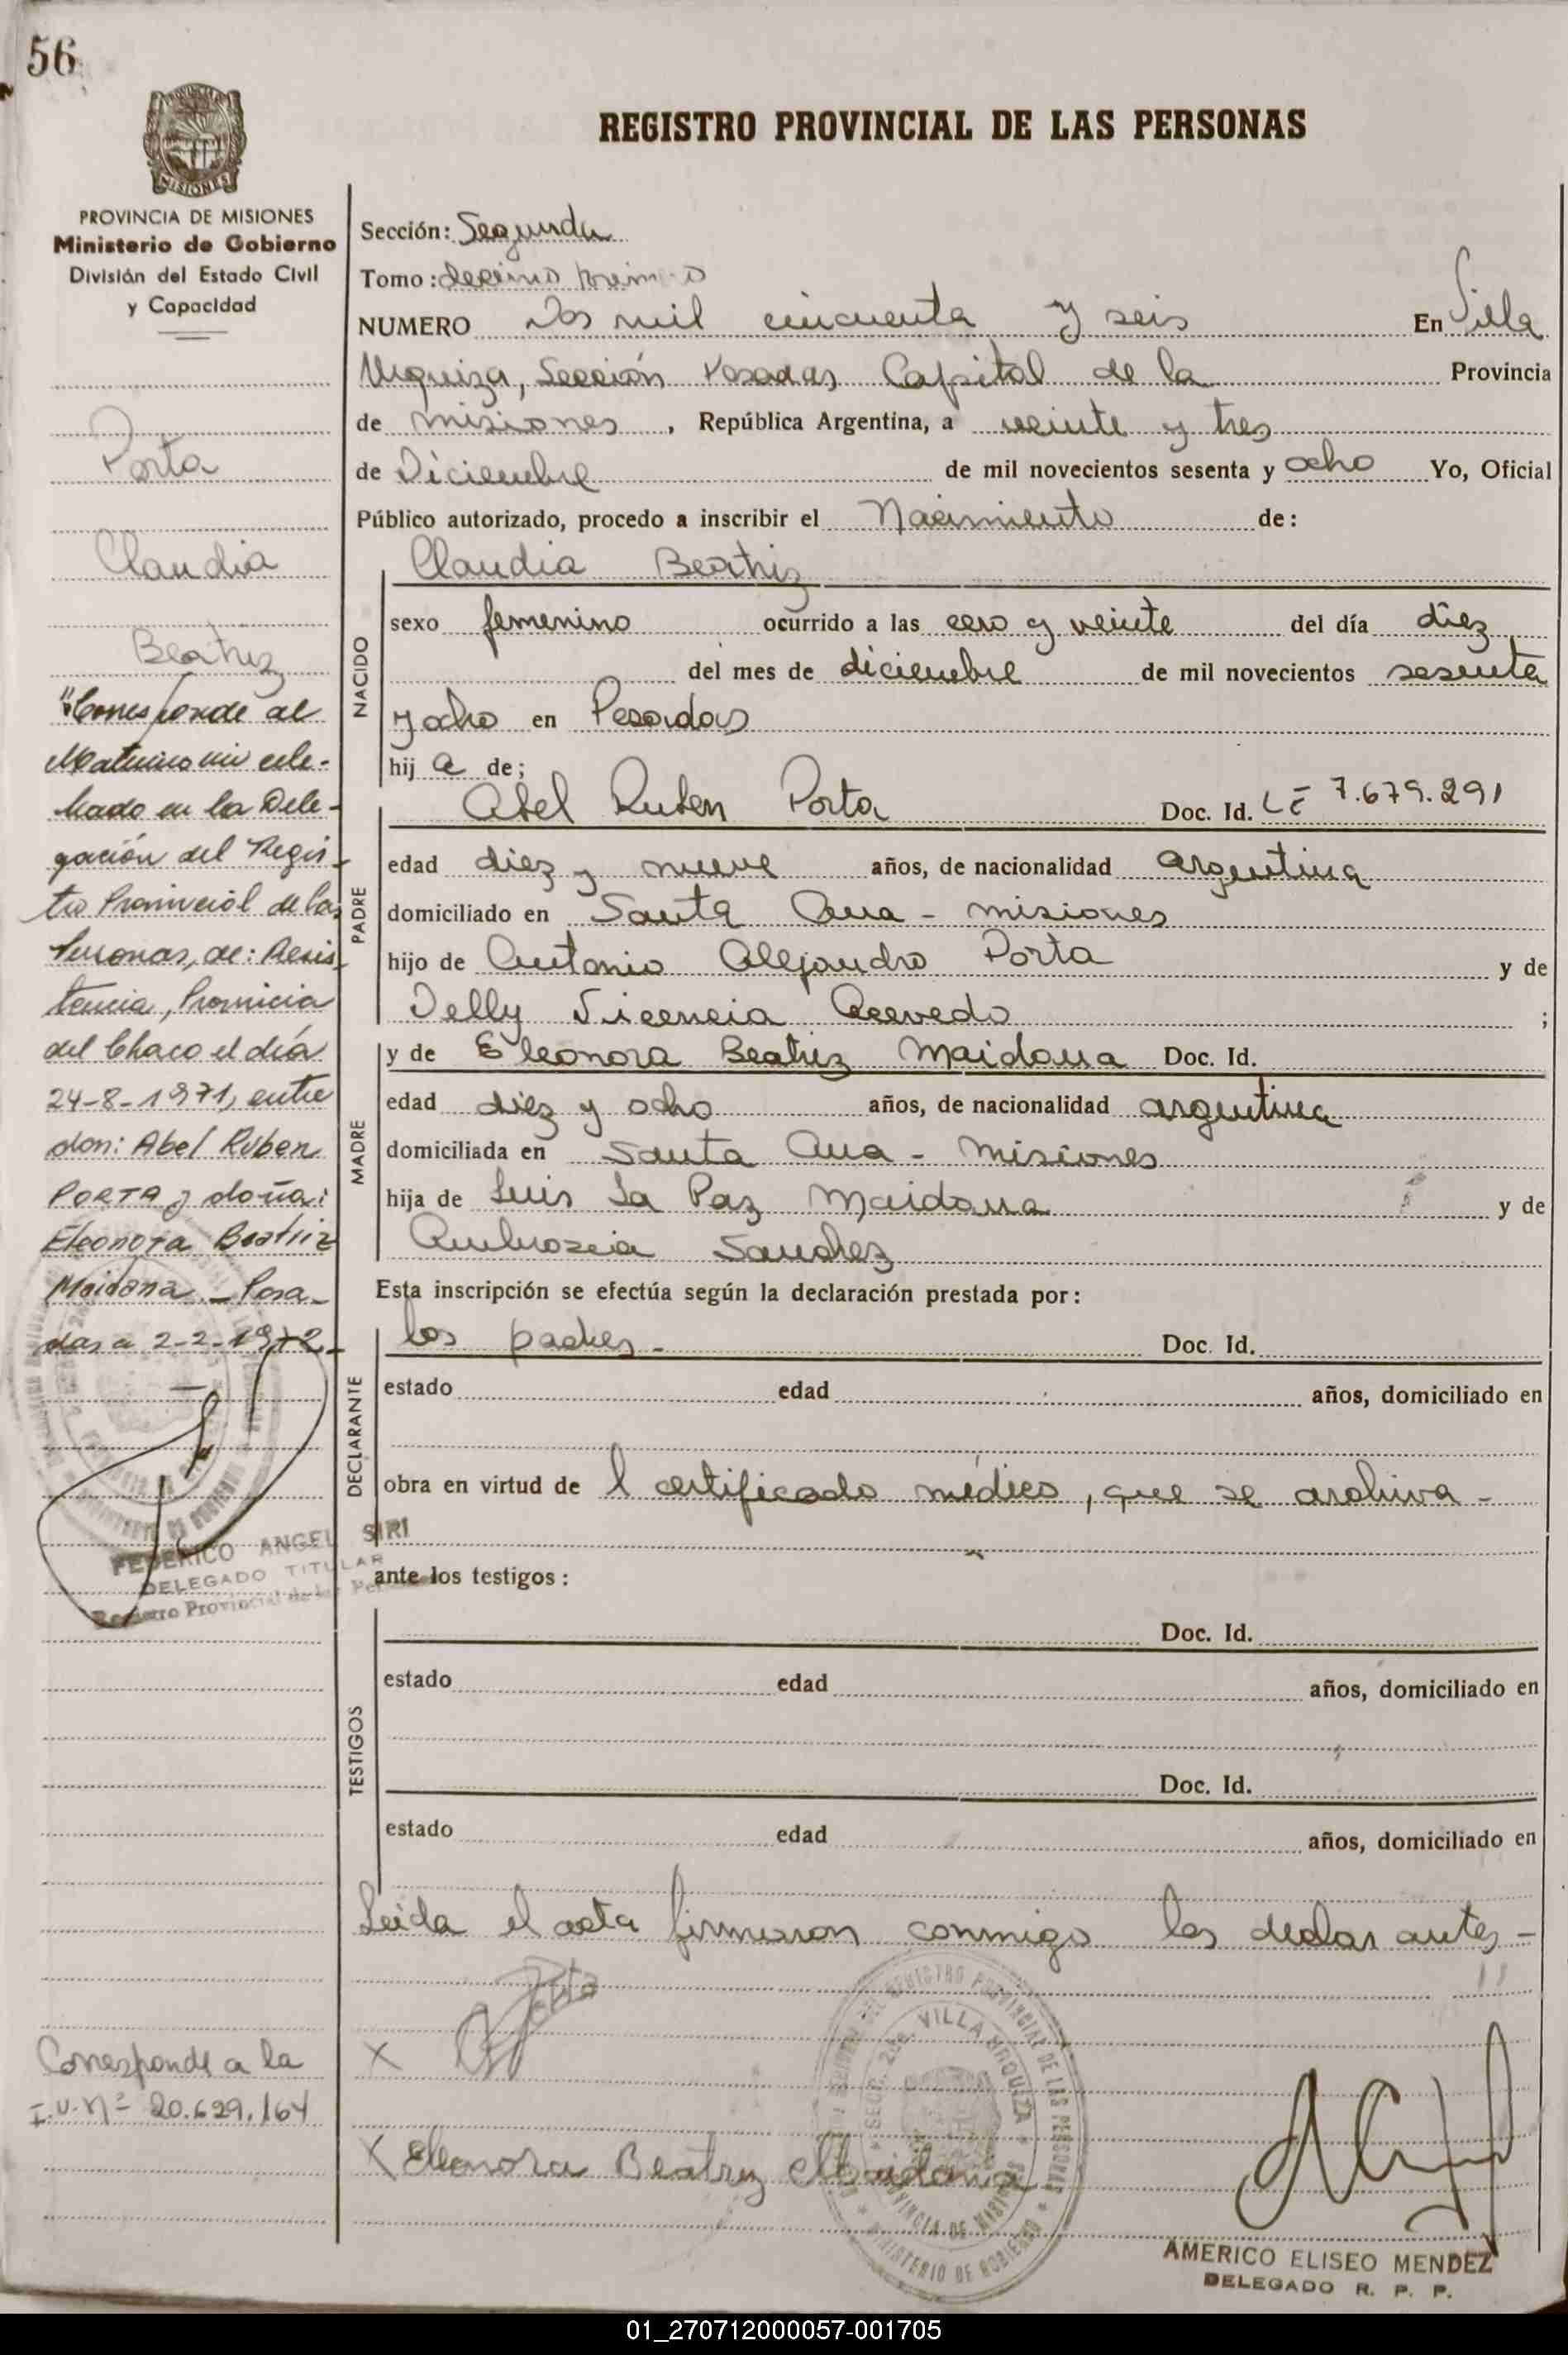 56
REGISTRO PROVINCIAL DE LAS PERSONAS
MISIONES
PROVINCIA DE MISIONES
Ministerio de Gobierno
División del Estado Civil
y Capacidad
Porta
Claudia
Beatriz
"Corresponde al
Matrimonio cele-
brado en la Dele-
gación del Regis-
tro Provincial de las
Personas, de: Resis
tencia, Provincia
del Chaco el día
24-8-1971, entre
don: Abel Ruben
PORTA y doña:
Eleonora Beatriz
Maidana - Posa-
das a 2-2-1972 -
FEDERICO ANGEL SIRI
DELEGADO TITULAR
Registro Provincial de las
Corresponde a la
I.U.Nº 20.629.164
Sección: Segunda
Tomo: decimo primero
NUMERO Dos mil cincuenta y seis En Villa
Urquiza, Sección Posadas Capital de la Provincia
de misiones, República Argentina, a veinte y tres
de Diciembre de mil novecientos sesenta y ocho Yo, Oficial
Público autorizado, procedo a inscribir el Nacimiento de:
NACIDO
Claudia Beatriz
sexo femenino ocurrido a las cero y veinte del día diez
del mes de diciembre de mil novecientos sesenta
y ocho en Posadas
hij a de;
PADRE
Abel Ruben Porta Doc. Id. LE 7.679.291
edad diez y nueve años, de nacionalidad argentina
domiciliado en Santa Ana - misiones
hijo de Antonio Alejandro Porta y de
Delly Vicencia Acevedo ;
MADRE
y de Eleonora Beatriz Maidana Doc. Id.
edad diez y ocho años, de nacionalidad argentina
domiciliada en Santa Ana - misiones
hija de Luis La Paz Maidana y de
Ambrosia Sanchez
Esta inscripción se efectúa según la declaración prestada por:
DECLARANTE
los padres - Doc. Id.
estado edad años, domiciliado en
obra en virtud de l certificado médico, que se archiva -
ante los testigos:
TESTIGOS
Doc. Id.
estado edad años, domiciliado en
Doc. Id.
estado edad años, domiciliado en
Leida el acta firmaron conmigo los declarantes -
X Porta
X Eleonora Beatriz Maidana
REGISTRO PROVINCIAL DE LAS PERSONAS
SECC. 2da. VILLA URQUIZA
PROVINCIA DE MISIONES
MINISTERIO DE GOBIERNO
AMERICO ELISEO MENDEZ
DELEGADO R. P. P.
01_270712000057-001705